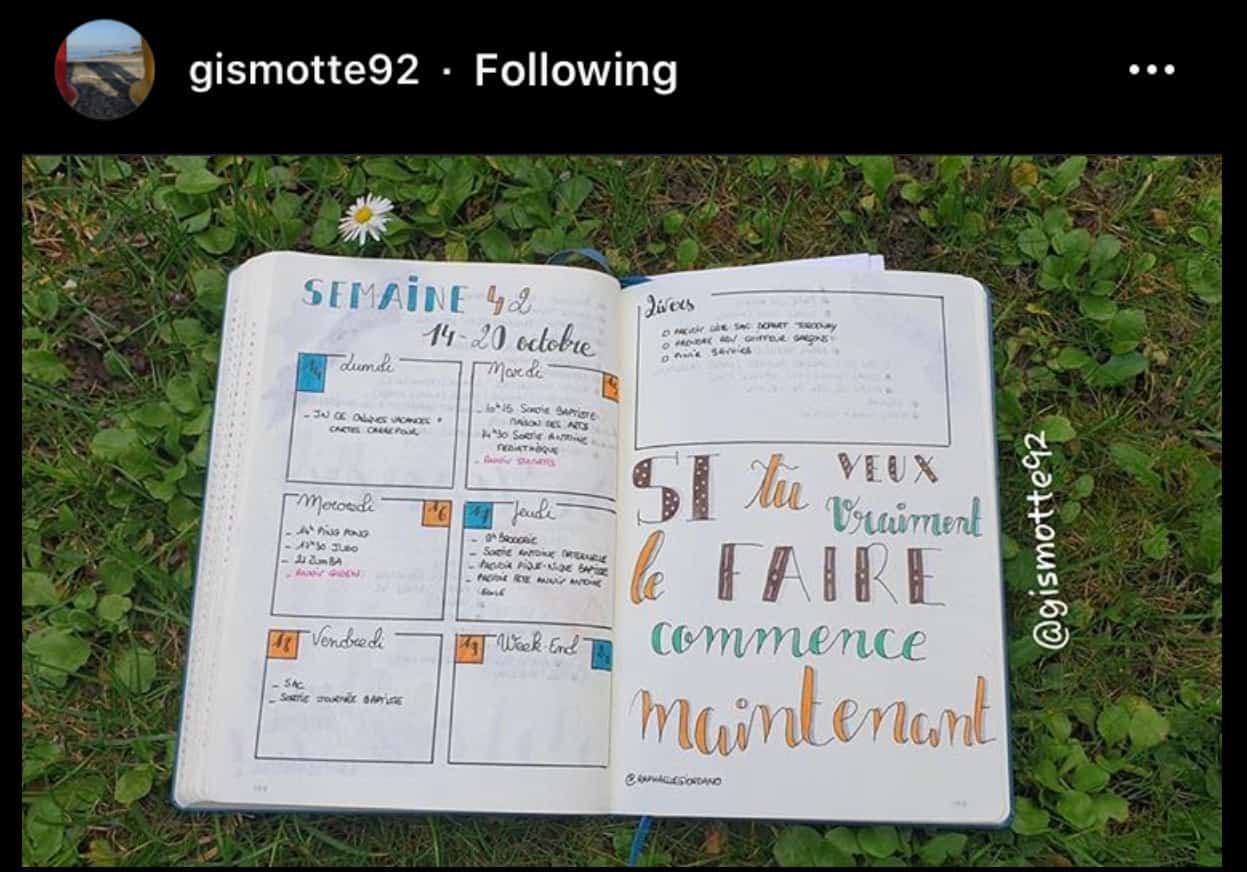 gismotte92 · Following
SEMAINE 42
14-20 octobre
14 Lundi
CARTES CARREFOUR
Mardi 15
10h15 SORTIE BAPTISTE
MAISON DES ARTS
14h30 SORTIE ANTOINE
MEDIATHEQUE
Mercredi 16
- 14h PING PONG
- 17h30 JUDO
- 21 ZUMBA
17 Jeudi
- 9h BRODERIE
- SORTIE ANTOINE MATERNELLE
- PREVOIR PIQUE-NIQUE BAPTISTE
- PREVOIR FETE ANNIV ANTOINE
ECOLE
18 Vendredi
- SAC
- SORTIE JOURNÉE BAPTISTE
19 Week-End 20
Divers
SAC DEPART
O PRENDRE RDV COIFFEUR GARÇONS
SI tu VEUX
Vraiment
le FAIRE
commence
maintenant
@RAPHAELLEGIORDANO
@gismotte92